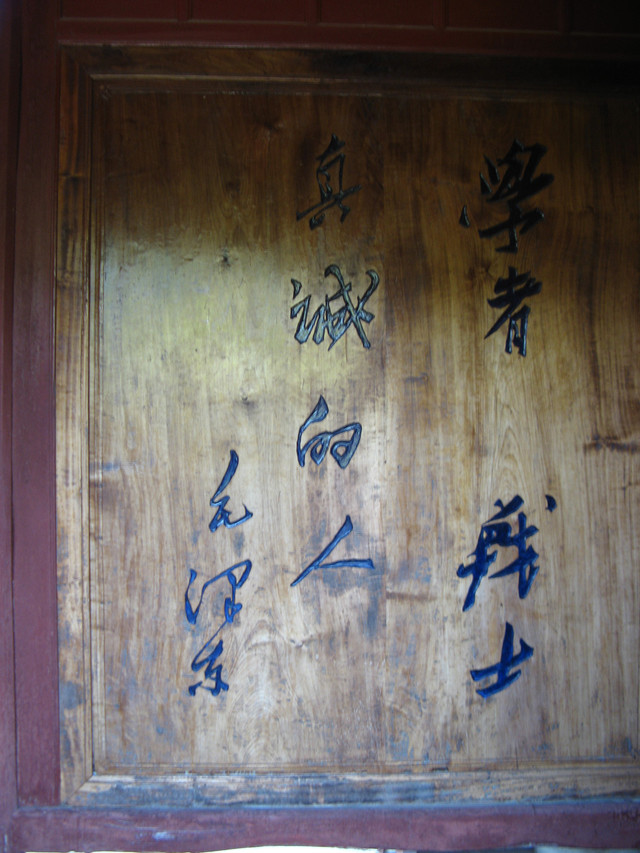 學者 戰士
真誠的人
毛澤东